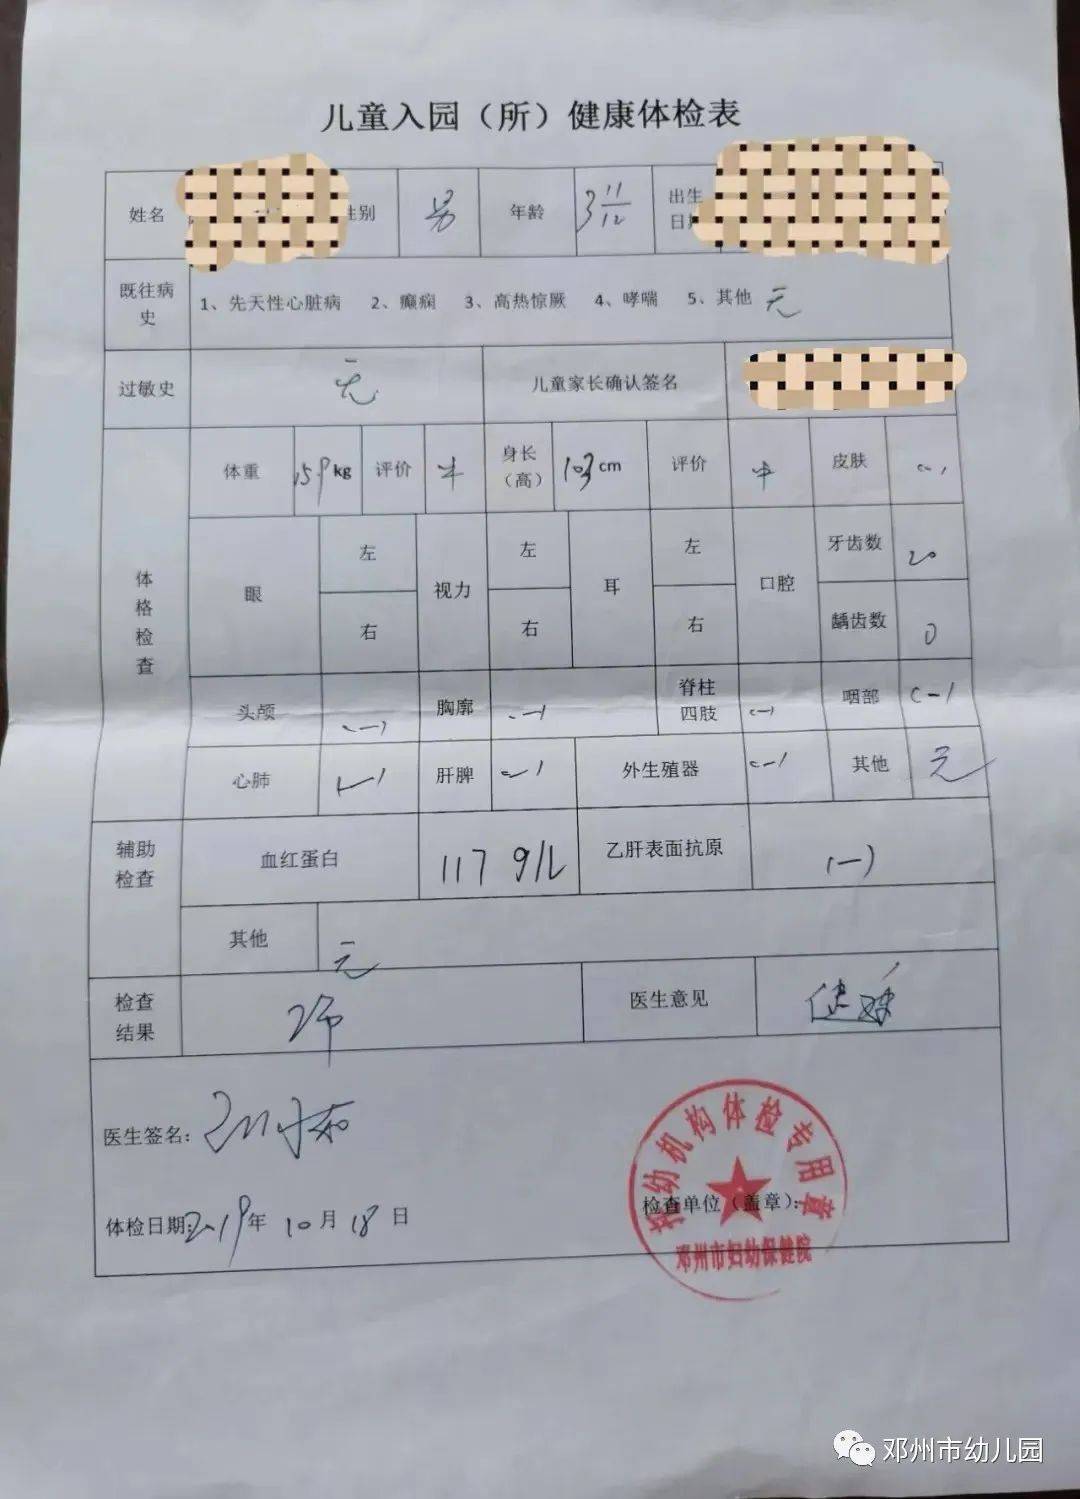 儿童入园（所）健康体检表
姓名 性别 男 年龄 3 11/12 出生日期
既往病史 1、先天性心脏病 2、癫痫 3、高热惊厥 4、哮喘 5、其他 无
过敏史 无 儿童家长确认签名
体格检查
体重 15.9 kg 评价 中 身长（高） 103 cm 评价 中 皮肤 (-)
眼 左 右 视力 左 右 耳 左 右 口腔 牙齿数 20
龋齿数 0
头颅 (-) 胸廓 (-) 脊柱四肢 (-) 咽部 (-)
心肺 (-) 肝脾 (-) 外生殖器 (-) 其他 无
辅助检查 血红蛋白 117 g/L 乙肝表面抗原 (-)
其他 无
检查结果 医生意见 健康
医生签名：
体检日期： 2019年 10月 18日
检查单位（盖章）：
幼机构体检专用章
邓州市妇幼保健院
邓州市幼儿园